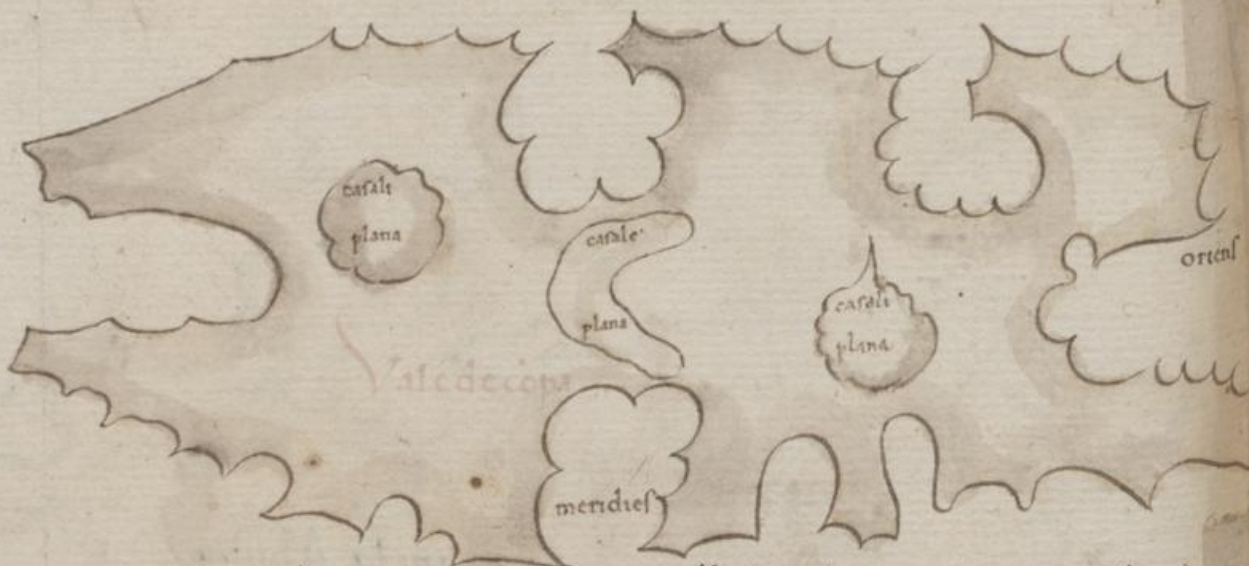 casali
plana
casale
plana
casali
plana
oriens
meridies